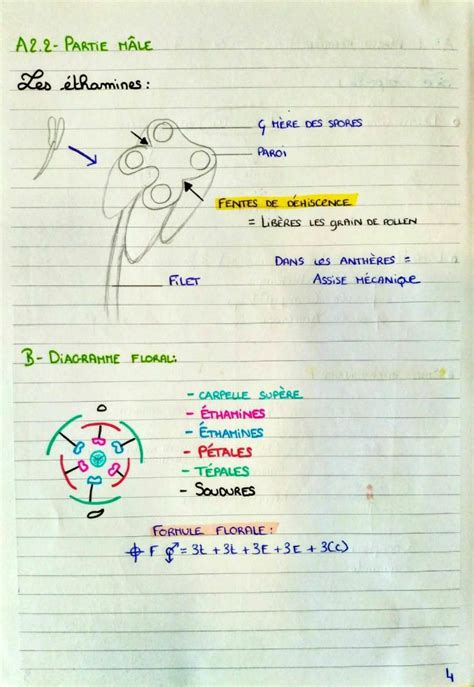 A2.2- PARTIE MÂLE
Les éthamines :
Ç MÈRE DES SPORES
PAROI
FENTES DE DÉHISCENCE
= LIBÈRES LES GRAIN DE POLLEN
DANS LES ANTHÈRES =
ASSISE MÉCANIQUE
FILET
B- DIAGRAMME FLORAL:
- CARPELLE SUPÈRE
- ÉTHAMINES
- ÉTHAMINES
- PÉTALES
- TÉPALES
- SOUDURES
FORMULE FLORALE :
⌽ F ⚥ = 3t + 3t + 3E + 3E + 3(C)
4